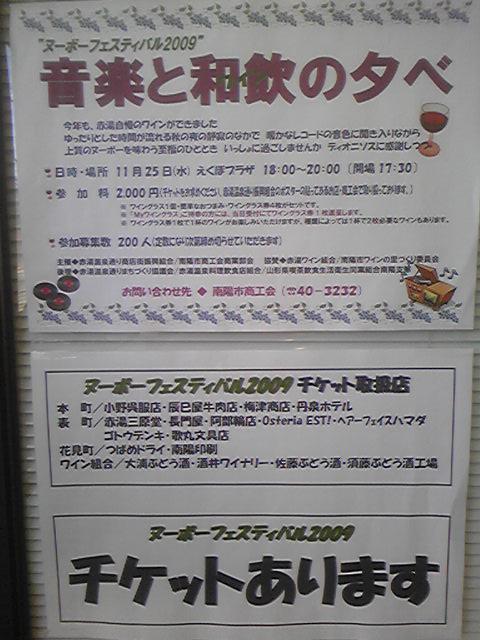 "ヌーボーフェスティバル2009"
音楽と和飲の夕べ
今年も、赤湯自慢のワインができました
ゆったりとした時間が流れる秋の夜の静寂のなかで 暖かなレコードの音色に聞き入りながら
上質のヌーボーを味わう至福のひととき いっしょに過ごしませんか ディオニソスに感謝しつつ
◆日時・場所 11月25日(水) えくぼプラザ 18:00~20:00 〔開場17:30〕
◆参加料 2,000円(チケットをお求めください。赤湯温泉通り振興組合のポスターの貼ってあるお店・商工会で取り扱っております。)
※ワイングラス1個・簡単なおつまみ・ワイングラス券4枚がセットです。
※「Myワイングラス」ご持参の方には、当日受付にてワイングラス券1枚進呈します。
※ワイングラス券1枚で1杯のワインがお楽しみいただけますが、種類によっては1杯で2枚必要なワインもあります。
◆参加募集数 200人(定数になり次第締め切らせていただきます)
主催◆赤湯温泉通り商店街振興組合/南陽市商工会商業部会 協賛◆赤湯ワイン組合/南陽市ワインの里づくり委員会
後援◆赤湯温泉通りまちづくり協議会/赤湯温泉料理飲食店組合/山形県喫茶飲食生活衛生同業組合南陽支部
お問い合わせ先 ◆ 南陽市商工会 (☎40-3232)
ヌーボーフェスティバル2009 チケット取扱店
本 町/小野呉服店・辰巳屋牛肉店・梅津商店・丹泉ホテル
表 町/赤湯三原堂・長門屋・阿部輪店・Osteria EST!・ヘアーフェイスハマダ
ゴトウデンキ・歌丸文具店
花見町/つばめドライ・南陽印刷
ワイン組合/大浦ぶどう酒・酒井ワイナリー・佐藤ぶどう酒・須藤ぶどう酒工場
ヌーボーフェスティバル2009
チケットあります